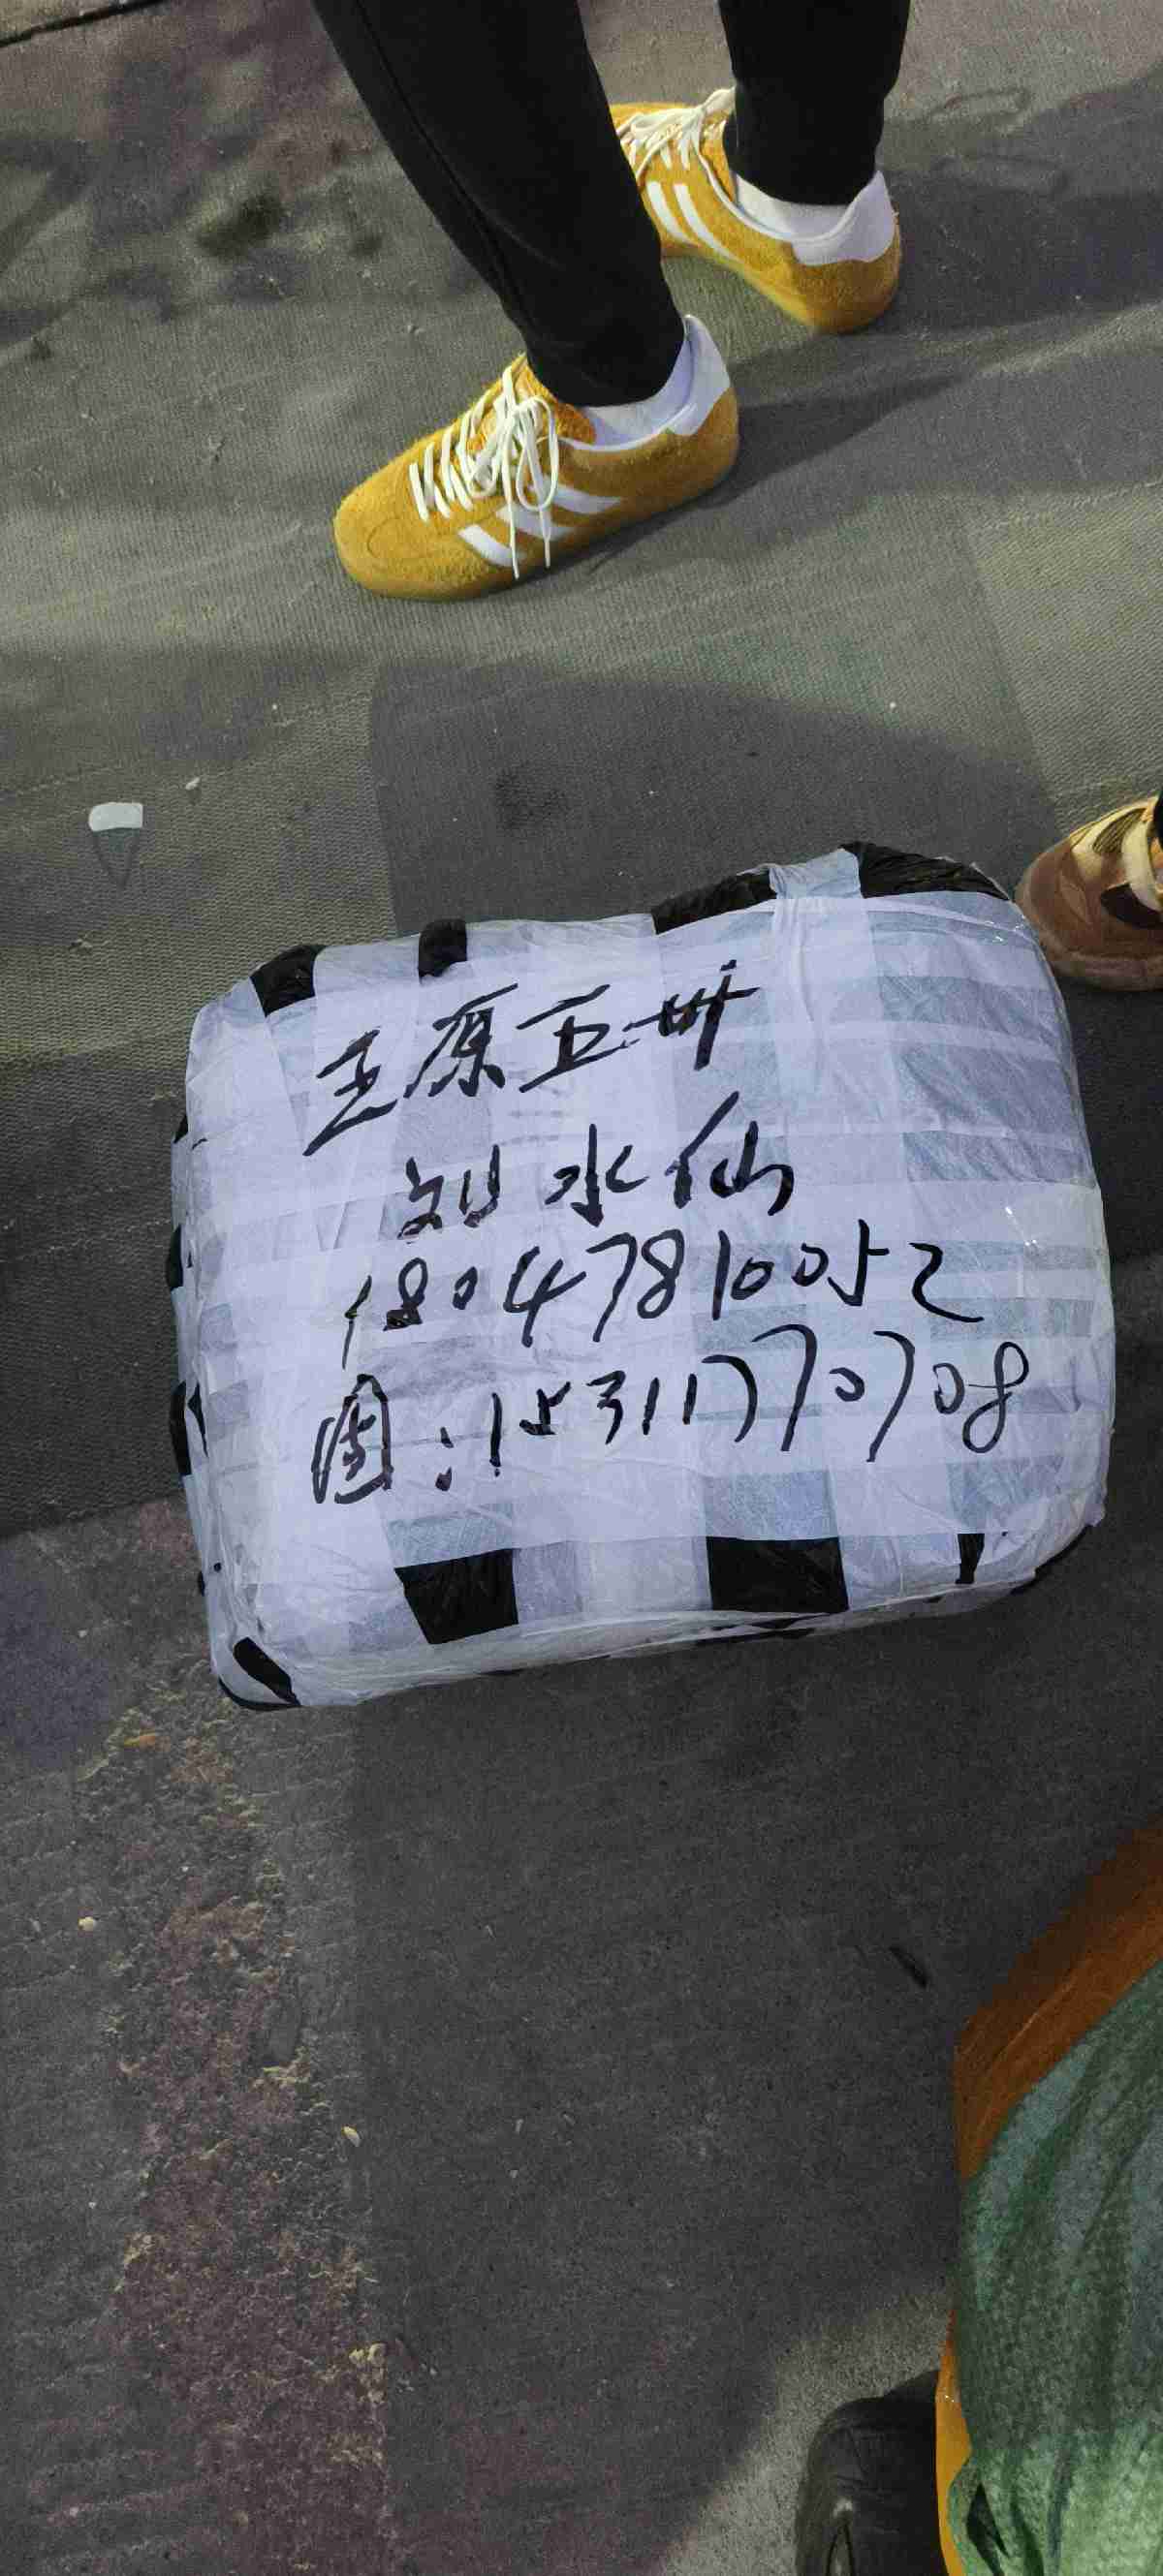 五原五卅
刘水仙
18047810052
周:15311770708